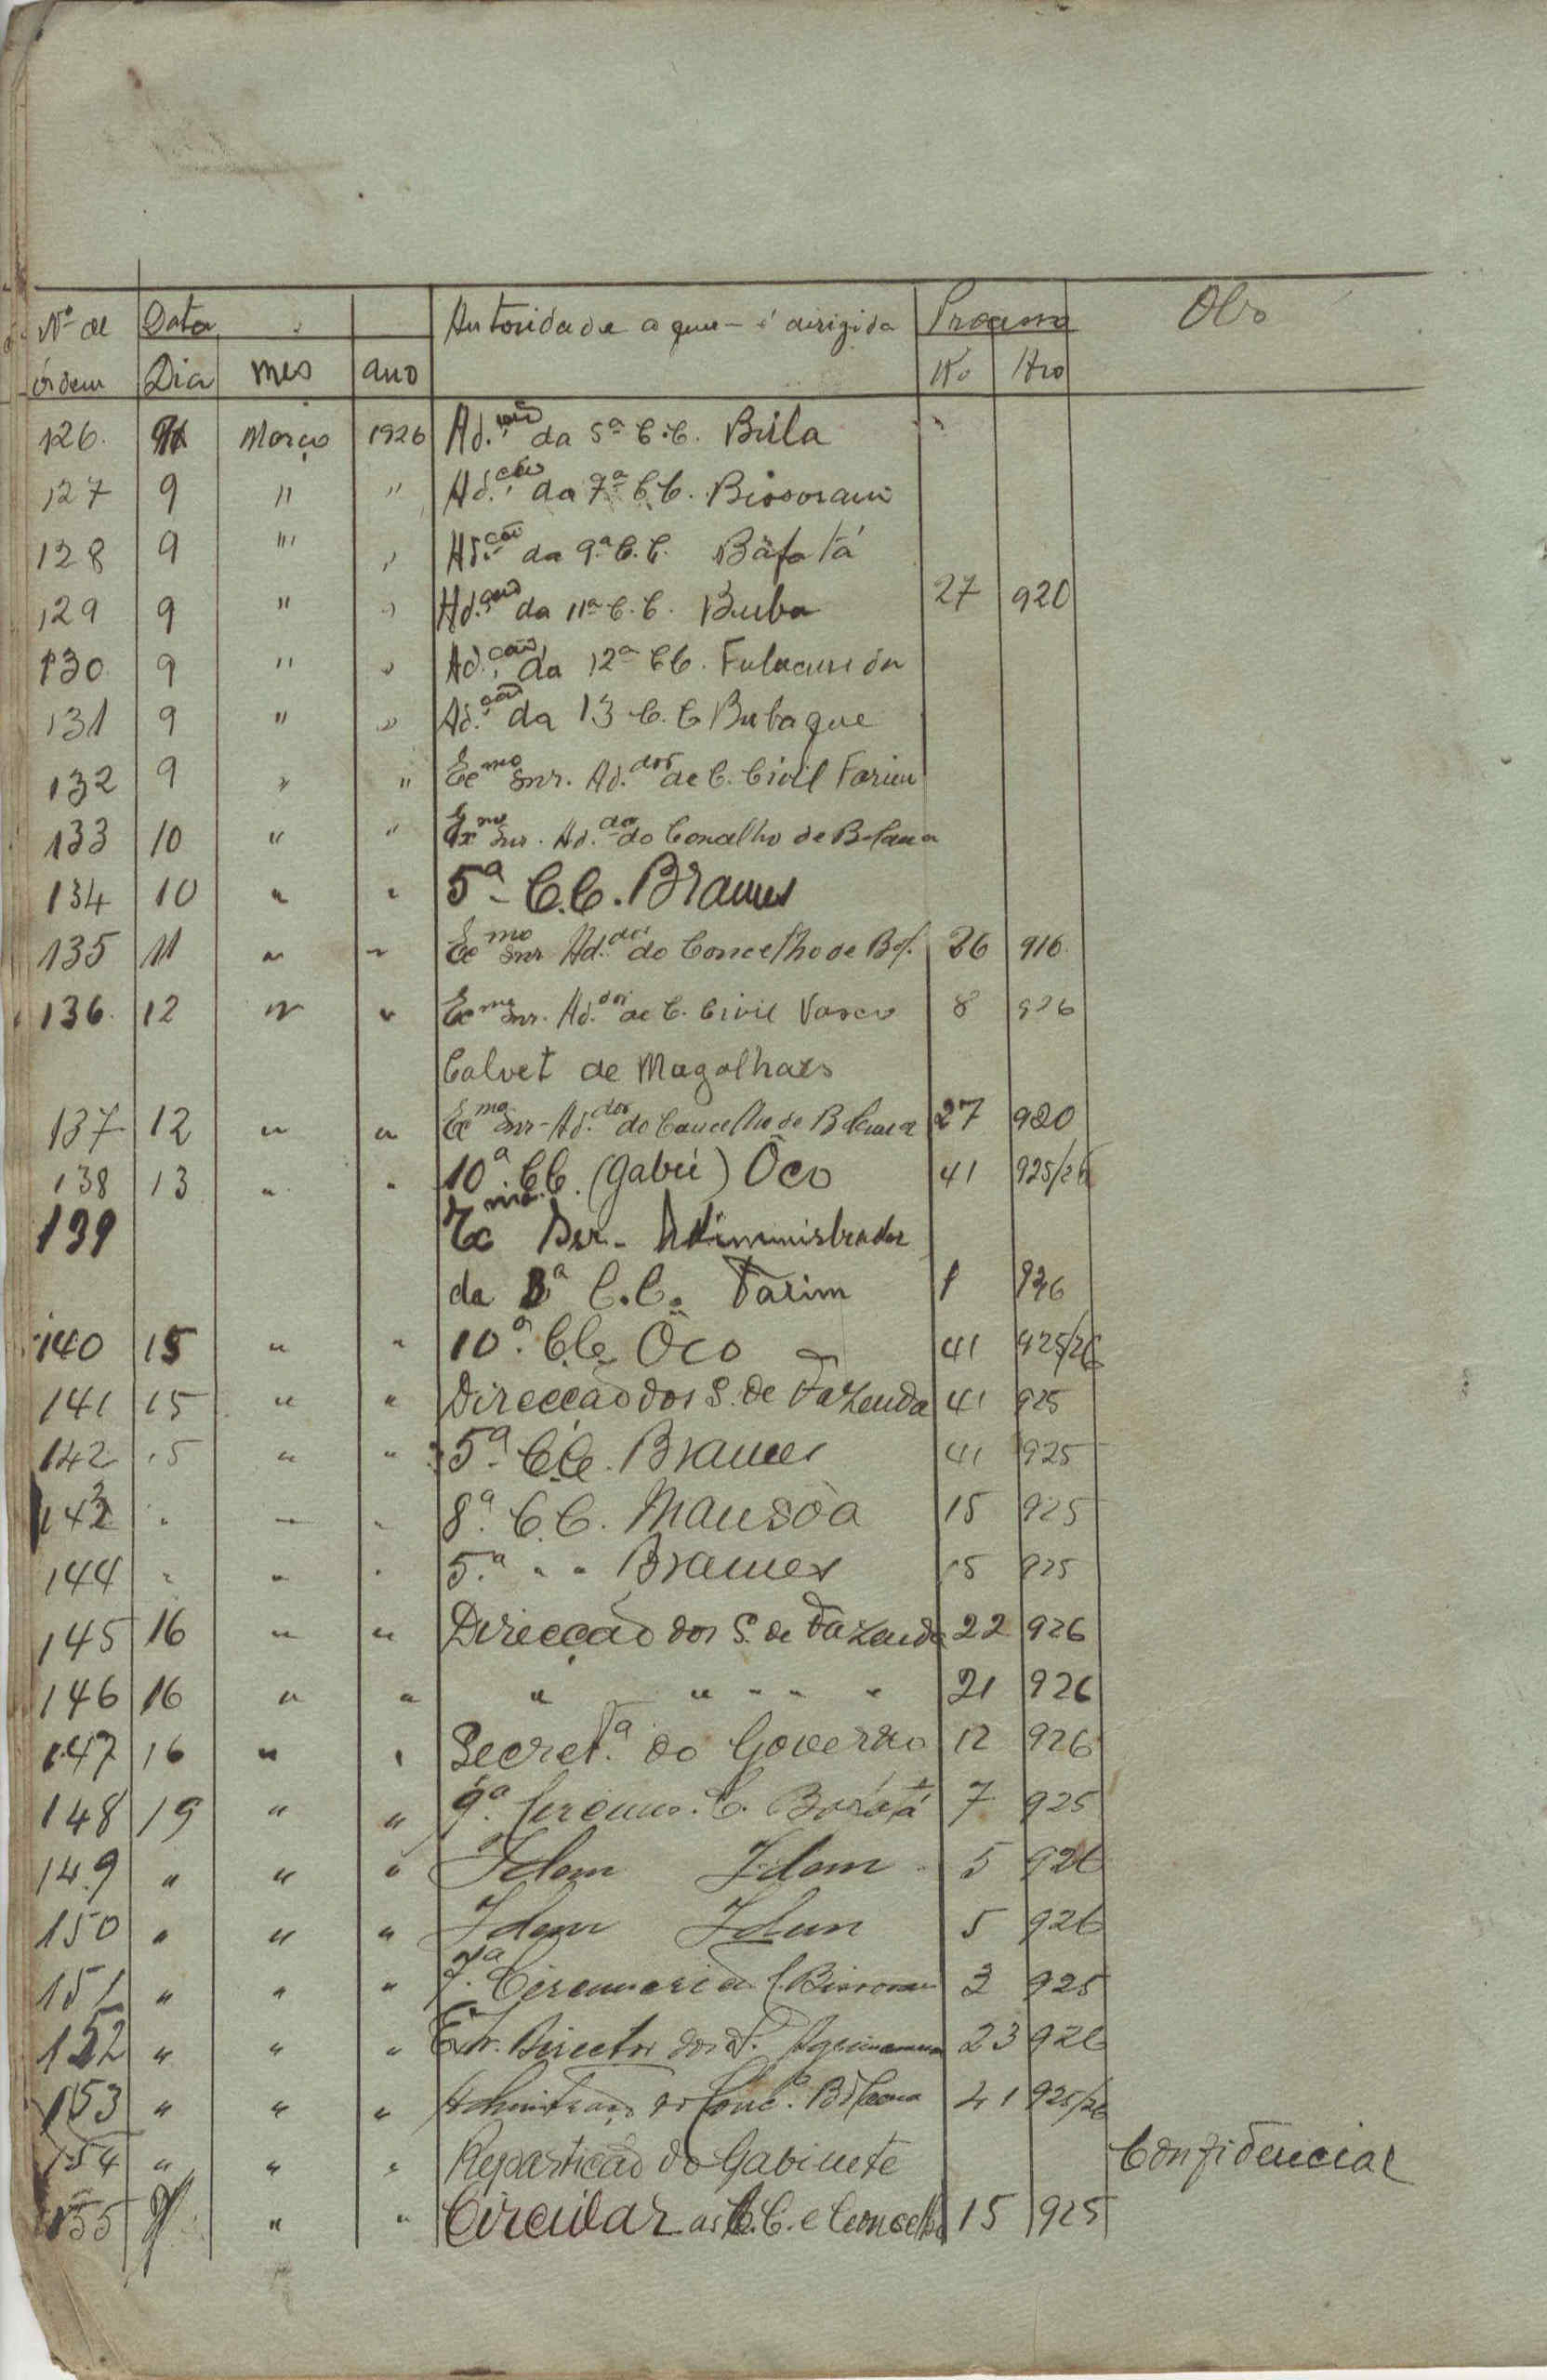 Nº de Data Autoridade a que é dirigida Processo Obs
órdem Dia mes ano Nº Ano
126. Março 1926 Ad.ção da 5ª C.C. Bula
127 9 " " Ad.ção da 7ª C.C. Bissoram
128 9 " " Ad.ção da 9ª C.C. Bafatá
129 9 " " Ad.ção da 11ª C.C. Buba 27 920
130 9 " " Ad.ção da 12ª C.C. Fulacunda
131 9 " " Ad.ção da 13 C.C Bubaque
132 9 " " Exmo Snr. Ad.dor de C. Civil Farim
133 10 " " Exmo Snr. Ad.dor do Concelho de Bolama
134 10 " " 5ª C.C. Brames
135 11 " " Exmo Snr Ad.dor do Concelho de Bol. 26 916
136. 12 " " Exmo Snr. Ad.dor de C. Civil Vasco 8 926
Calvet de Magalhaes
137 12 " " Exmo Snr Ad.dor do Concelho de Bolama 27 920
138 13 " " 10ª C.C. (Gabú) Ôco 41 925/26
139 Exmo Snr. Administrador
da C.C. Farim 1 926
140 15 " " 10ª C.C. Ôco 41 925/26
141 15 " " Direcção dos S. de Fazenda 41 925
142 15 " " 5ª C.C. Brames 41 925
143 " " " 8ª C.C. Mansôa 15 925
144 " " " 5ª " " Brames 15 925
145 16 " " Direcção dos S. de Fazenda 22 926
146 16 " " " " " " " 21 926
147 16 " " Secret.ª do Governo 12 926
148 19 " " 9ª Circuns. C. Bafatá 7 925
149 " " " Idem Idem 5 926
150 " " " Idem Idem 5 926
151 " " " 7ª C. Bissoram 3 925
152 " " " Director dos S. 23 926
153 " " " Conc.º Bolama 41 925/26
154 " " " Repartição do Gabinete Confidencial
155 " " Circular as C.C. e Concelho 15 925